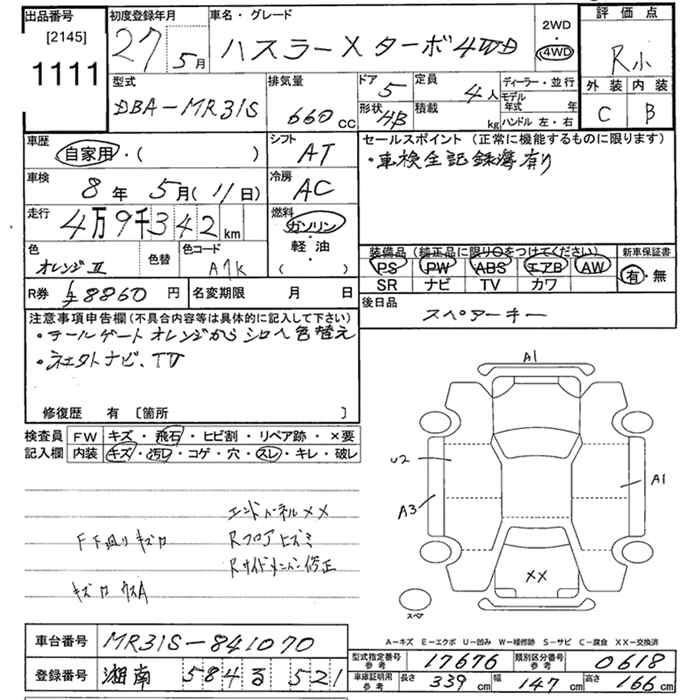 出品番号
[2145]
1111
初度登録年月
27 5月
車名・グレード
ハスラー X ターボ 4WD
2WD
・
4WD
評価点
R小
外装 内装
C B
型式
DBA-MR31S
排気量
660 CC
ドア
5
形状
4B
定員
4人
積載
kg
ディーラー・並行
モデル
年式 年
ハンドル 左・右
車歴
自家用・( )
シフト
AT
セールスポイント (正常に機能するものに限ります)
・車検全記録簿有り
車検
8年 5月(11日)
冷房
AC
走行
4万9千342km
燃料
ガソリン
・
軽油
( )
色
オレンジⅡ
色替
色コード
装備品 (純正品に限り○をつけてください)
PS PW ABS エアB AW
SR ナビ TV カワ
新車保証書
有・無
R券 8860円
名変期限 月 日
後日品
スペアーキー
注意事項申告欄(不具合内容等は具体的に記入して下さい)
・テールゲート オレンジから シロへ色替え
・ネエクトナビ、TV
修復歴 有 [箇所 ]
検査員
記入欄
FW キズ・飛石・ヒビ割・リペア跡・×要
内装 キズ・汚レ・コゲ・穴・スレ・キレ・破レ
エンドパネルXX
Rフロアヒズミ
Rサイドメンバー修正
A1
U2
A3
A1
XX
スペア
A-キズ E-エクボ U-凹み W-補修跡 S-サビ C-腐食 XX-交換済
車台番号 MR31S-841070
登録番号 湘南 584 る 521
型式指定番号
参考
17676
類別区分番号
参考
0618
車庫証明用
参考
長さ 339cm 幅 147cm 高さ 166cm